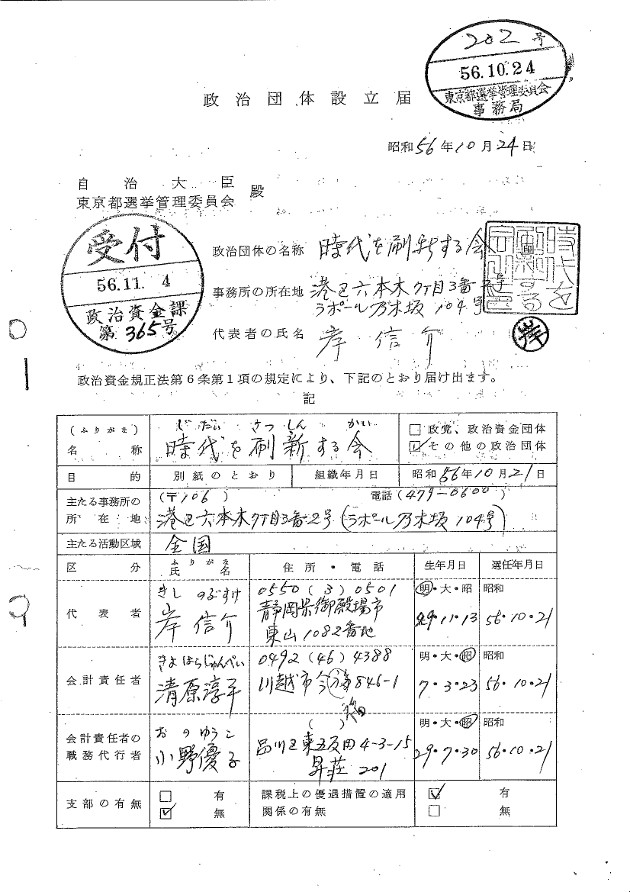 202号
56.10.24
東京都選挙管理委員会
事務局
政治団体設立届
昭和56年10月24日
自治大臣
東京都選挙管理委員会 殿
受付
56.11.4
政治資金課
第365号
政治団体の名称 時代を刷新する会
事務所の所在地 港区六本木7丁目3番2号
ラポール乃木坂104号
代表者の氏名 岸信介
岸
政治資金規正法第6条第1項の規定により、下記のとおり届け出ます。
記
(ふりがな) じだい さっしん かい
名称 時代を刷新する会
□政党、政治資金団体
☑その他の政治団体
目的 別紙のとおり 組織年月日 昭和56年10月21日
主たる事務所の所在地 (〒106) 電話(479-0600)
港区六本木7丁目3番2号(ラポール乃木坂104号)
主たる活動区域 全国
区分 ふりがな 氏名 住所・電話 生年月日 選任年月日
代表者 きし のぶすけ 岸信介
0550(3)0501
静岡県御殿場市
東山1082番地
明・大・昭 29・11・13
昭和 56・10・21
会計責任者 きよはらじゅんぺい 清原淳平
0492(46)4388
川越市今福846-1
福
明・大・昭 7・3・23
昭和 56・10・21
会計責任者の職務代行者 おのゆうこ 小野優子
( )
品川区東五反田4-3-15
昇荘201
明・大・昭 29・7・30
昭和 56・10・21
支部の有無 □有 ☑無
課税上の優遇措置の適用関係の有無 ☑有 □無